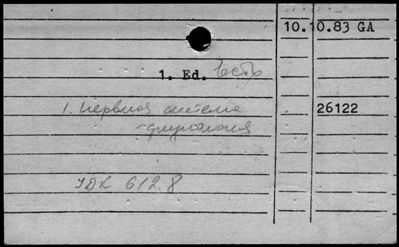 10.10.83 GA
1. Ed.
1. Нервная система
26122
-физиология
УДК 612.8